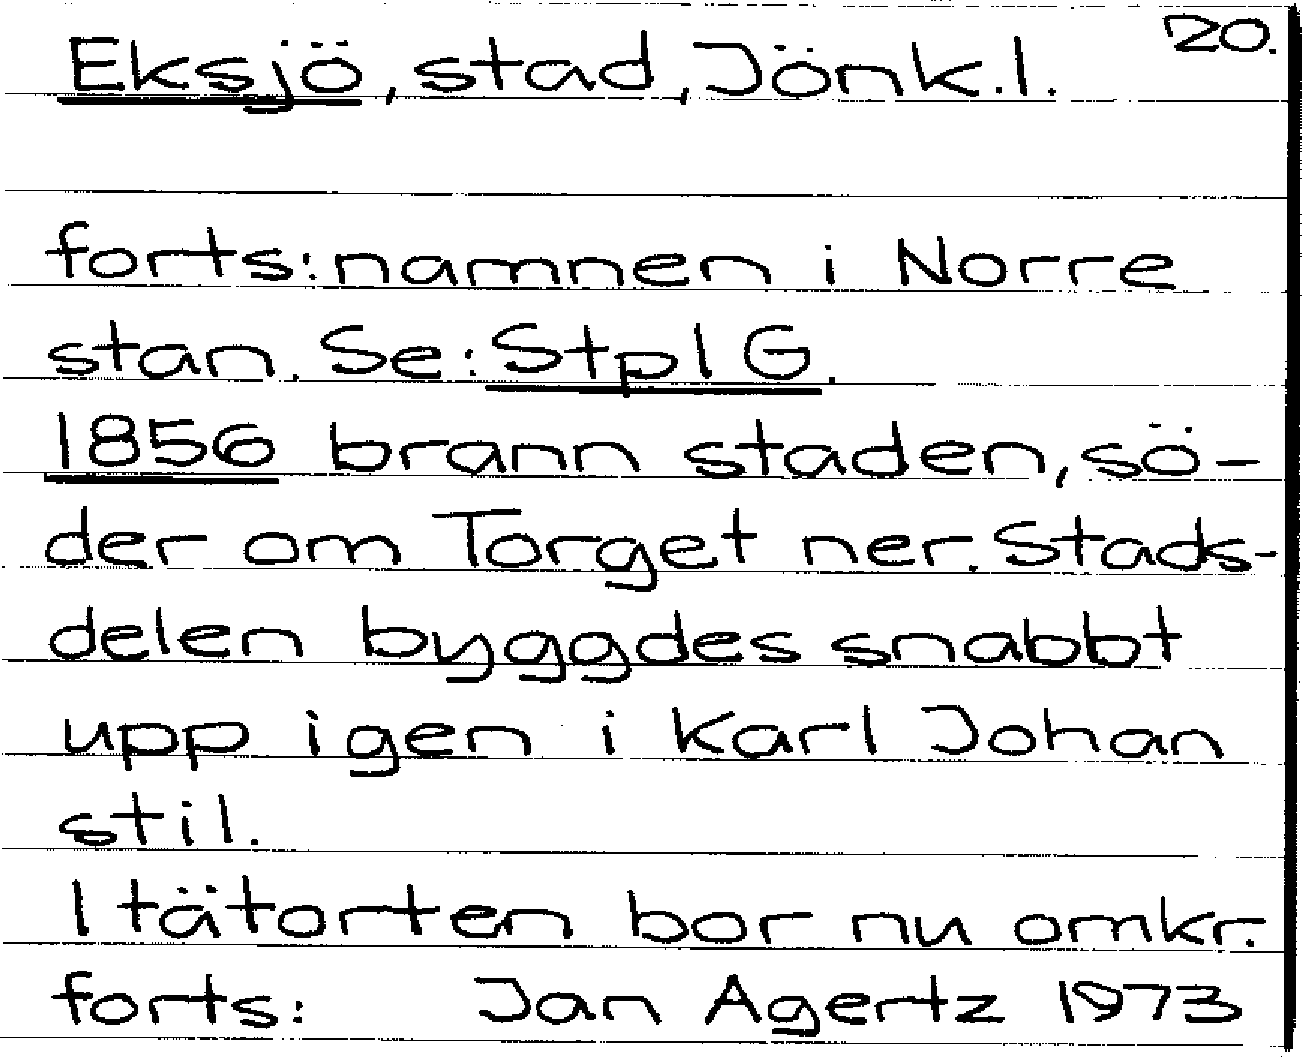 20.
Eksjö, stad, Jönk.l.
forts: namnen i Norre
stan. Se: Stpl G.
1856 brann staden, sö-
der om Torget ner. Stads-
delen byggdes snabbt
upp igen i Karl Johan
stil.
I tätorten bor nu omkr.
forts: Jan Agertz 1973